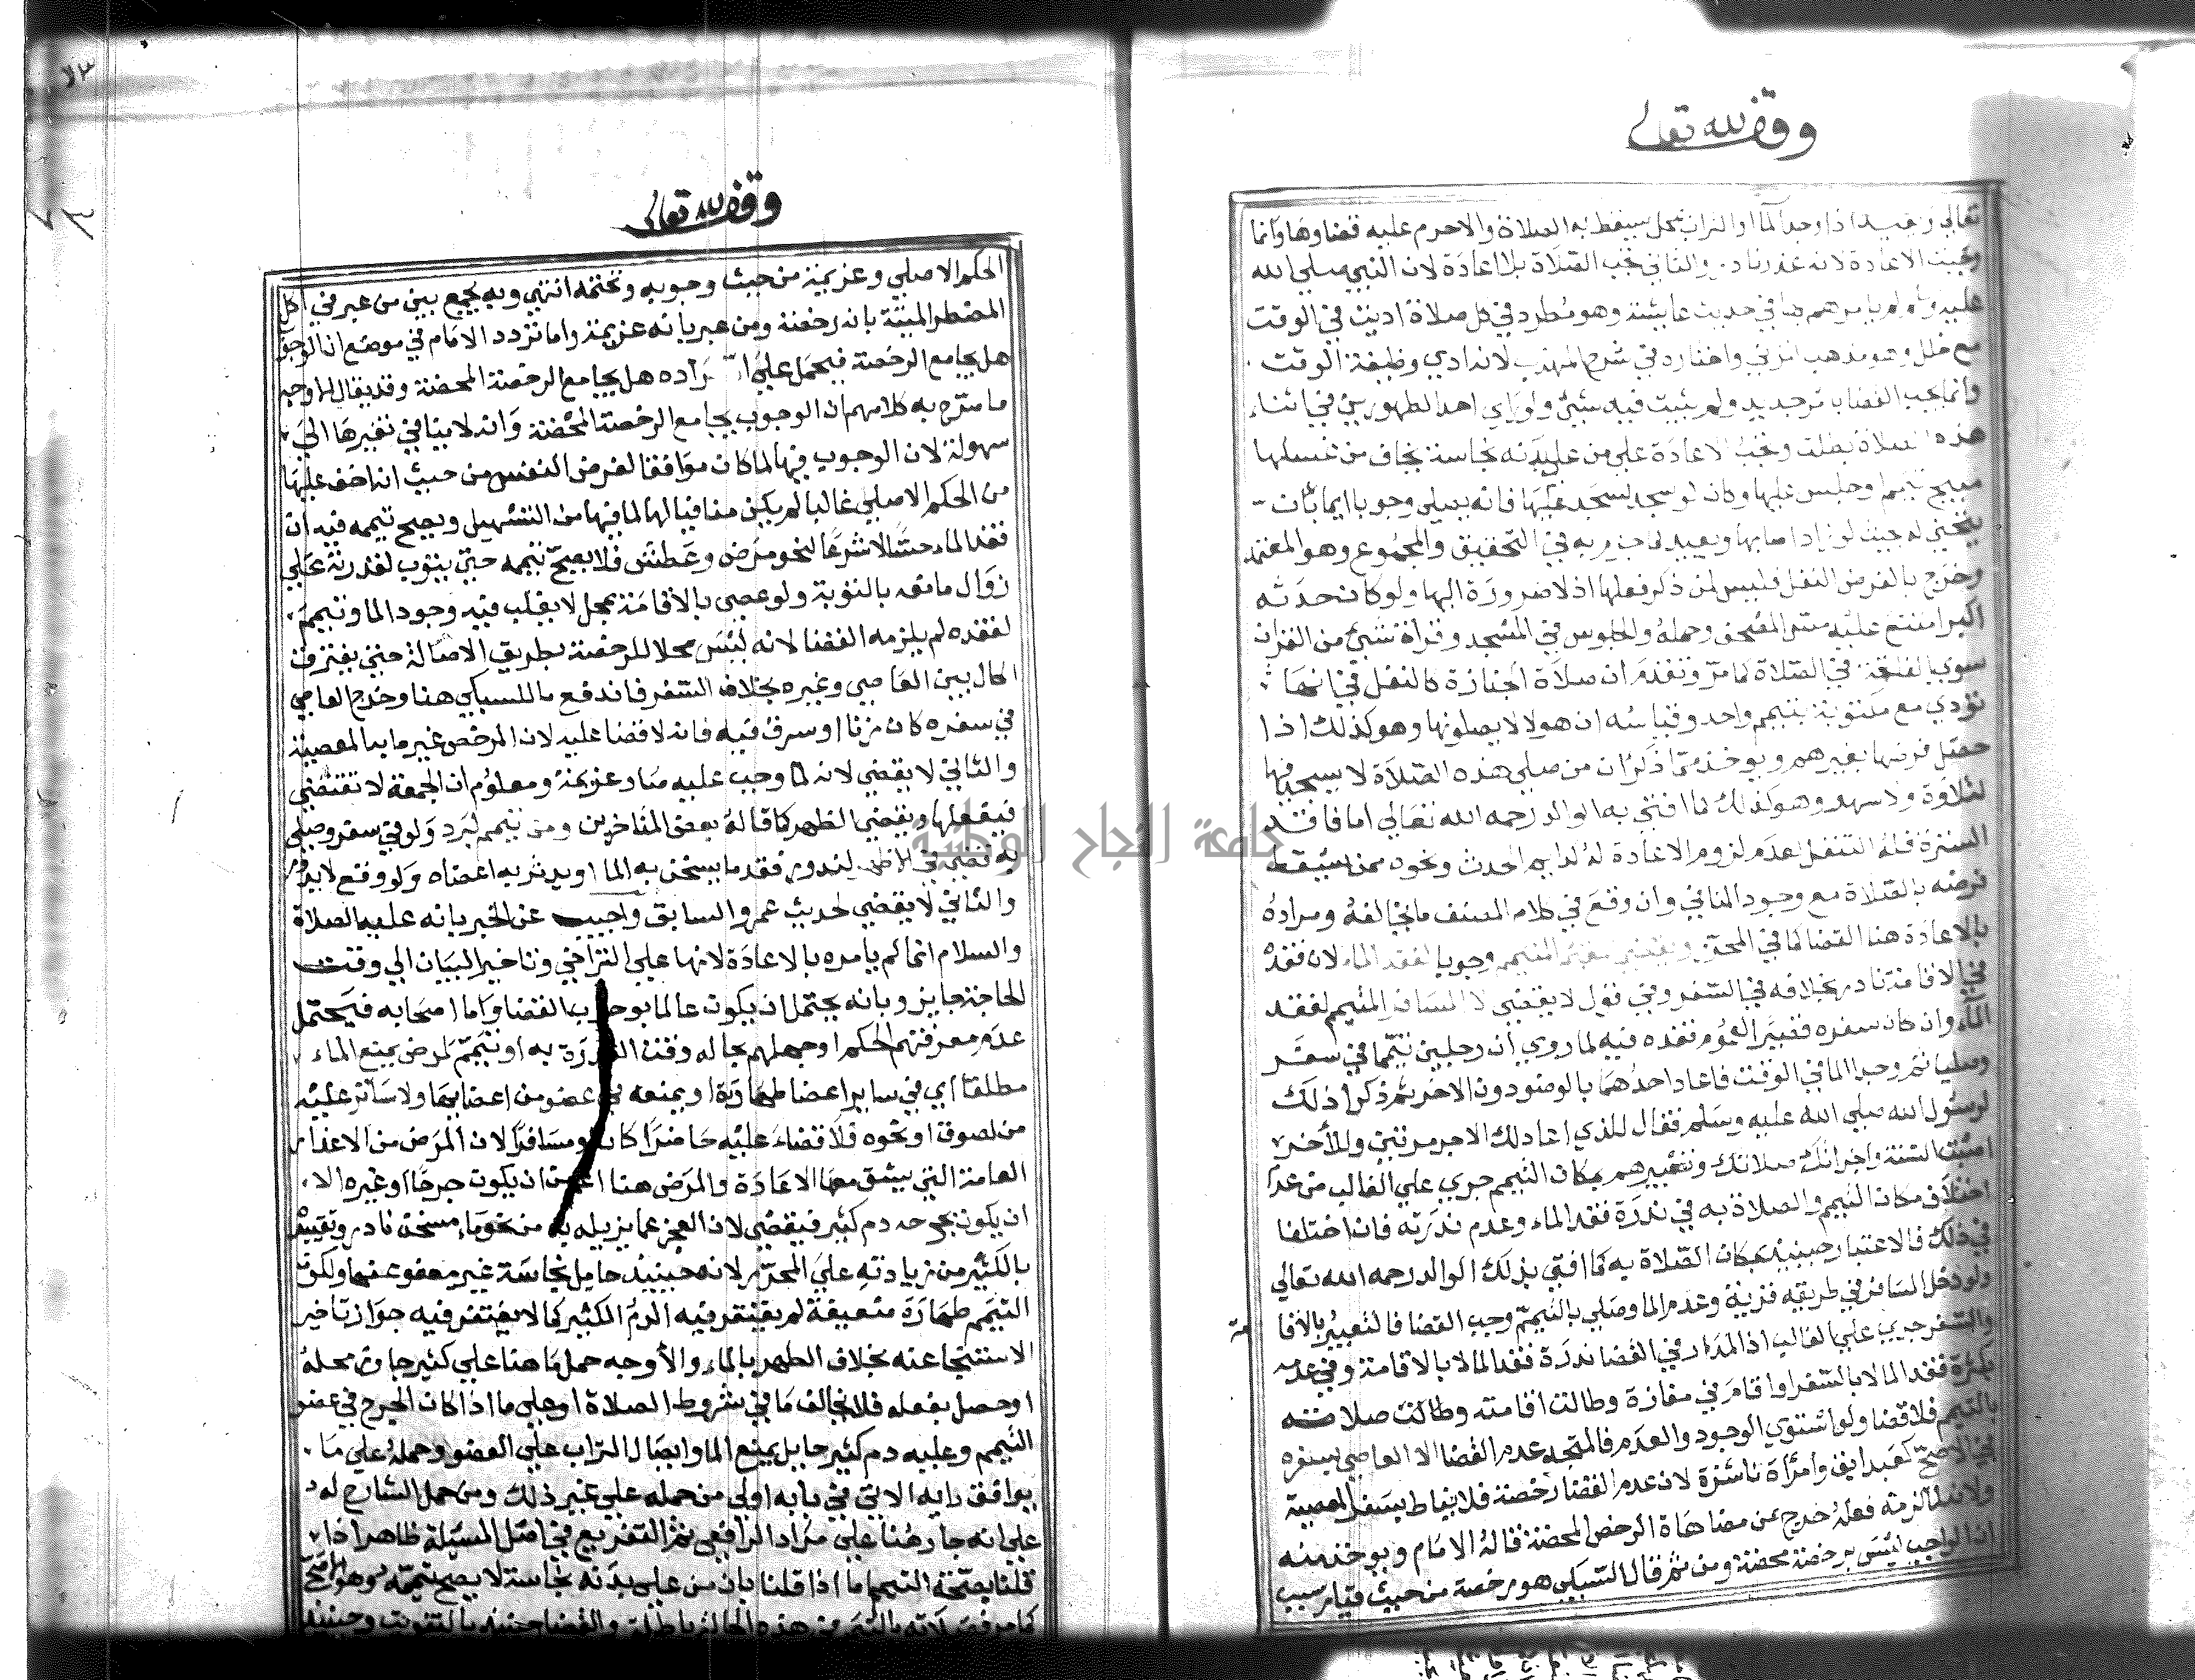 وقف لله تعالى
تعالى ويعيد اذا وجد الما او التراب بمحل يسقط به الصلاة والاحرم عليه قضاوها وانما
وجبت الاعادة لانه عذر نادر والثاني تجب الصلاة بلا اعادة لان النبي صلي الله
عليه وسلم لم يامرهم بها في حديث عائشة وهو مطرد في كل صلاة اديت في الوقت
مع خلل وهو مذهب المزني واختاره في شرح المهذب لانه ادي وظيفة الوقت
وانما يجب القضا بامر جديد ولم يثبت فيه شئ ولو راي احد الطهورين في اثناء
هذه الصلاة بطلت وتجب الاعادة علي من علي بدنه نجاسة يخاف من غسلها
مبيح تيمم او حبس عليها وكان لو سجد لسجد عليها فانه يصلي وجوبا ايماء بان
ينحني له بحيث لو زاد اصابها ويعيد لما جزم به في التحقيق والمجموع وهو المعتمد
وخرج بالفرض النفل فليس لمن ذكر فعلها اذ لا ضرورة اليها ولو كان حدثه
اكبر امتنع عليه مس المصحف وحمله والجلوس في المسجد وقراة شئ من القران
سوي الفاتحة في الصلاة لما مر وتقدم ان صلاة الجنازة كالنفل في انها
تؤدي مع مكتوبة بتيمم واحد وقياسه ان هولا لا يصلونها وهو كذلك اذا
حصل فرضها بغيرهم ويوخذ مما ذكر ان من صلي هذه الصلاة لا يسجد فيها
لتلاوة ولا سهو وهو كذلك كما افتي به الوالد رحمه الله تعالي اما فاقد
السترة فله التنفل لعدم لزوم الاعادة له كدايم الحدث ونحوه ممن يسقط
فرضه بالصلاة مع وجود المنافي وان وقع في كلام المصنف ما يخالفه ومراده
بالاعادة هنا القضا كما في المحرر ويقضي المقيم المتيمم وجوبا لفقد الماء لان فقده
في الاقامة نادر بخلافه في السفر وفي قول لا يقضي لا المسافر المتيمم لفقد
الماء وان كان سفره قصيرا لعموم فقده فيه لما روي ان رجلين تيمما في سفر
وصليا ثم وجدا الما في الوقت فاعاد احدهما بالوضو دون الاخر ثم ذكرا ذلك
لرسول الله صلي الله عليه وسلم فقال للذي اعاد لك الاجر مرتين وللأخر
اصبت السنة واجزاتك صلاتك وتعبيرهم بمكان التيمم جري علي الغالب من عدم
اختلاف مكان التيمم والصلاة به في ندرة فقد الماء وعدم ندرته فان اختلفا
في ذلك فالاعتبار حينئذ بمكان الصلاة به كما افتي بذلك الوالد رحمه الله تعالي
ولو دخل المسافر في طريقه قرية وعدم الما وصلي بالتيمم وجب القضا فالتعبير بالاقامة
والسفر جري علي الغالب اذ المدار في القضا ندرة فقد الما لا بالاقامة وفي عدمه
بكثرة فقد الما لا بالسفر او اقام في مفازة وطالت اقامته وطالت صلاته
بالتيمم فلا قضا ولو استوي الوجود والعدم فالمتجه عدم القضا الا العاصي بسفره
في الاصح كعبد ابق وامرأة ناشزة لان عدم القضا رخصة فلا يناط بسفر المعصية
ولانه لما لزمه فعله خرج عن مضاهاة الرخص المحضة قاله الامام ويوخذ منه
ان الواجب ليس برخصة محضة ومن ثم قال السبكي هو رخصة من حيث قيام سبب
وقف لله تعالى
الحكم الاصلي وعزيمة من حيث وجوبه وتحتمه انتهي وبه يجمع بين من عبر في اكل
المضطر الميتة بانه رخصة ومن عبر بانه عزيمة واما تردد الامام في موضع ان الوجوب
هل يجامع الرخصة فيحمل علي ان مراده هل يجامع الرخصة المحضة وقد يقال الاوجه
ما صرح به كلامهم ان الوجوب يجامع الرخصة المحضة وانه لا ينافي تغيرها الي
سهولة لان الوجوب فيها لما كان موافقا لغرض النفس من حيث انه اخف عليها
من الحكم الاصلي غالبا لم يكن منافيا لها لما فيها من التسهيل ويصح تيممه فيه ان
فقد الماء حسا لا شرعا لنحو مرض وعطش فلا يصح تيممه حتي يتوب لقدرته علي
زوال مانعه بالتوبة ولو عصي بالاقامة بمحل لا يغلب فيه وجود الما وتيمم
لفقده لم يلزمه القضا لانه ليس محلا للرخصة بطريق الاصالة حتي يفترق
الحال بين العاصي وغيره بخلاف السفر فاندفع ما للسبكي هنا وخرج العاصي
في سفره كان زنا او سرق فيه فانه لا قضا عليه لان المرخص غير ما به المعصية
والثاني لا يقضي لانه لما وجب عليه صار عزيمة ومعلوم ان الجمعة لا تقتضي
فيفعلها ويقضي الظهر كما قاله بعض المتاخرين ومن تيمم لبرد ولو في سفر وصلي
به قضي في الاظهر لندور فقد ما يسخن به الما او يدثر به اعضاه ولو وقع لا يدوم
والثاني لا يقضي لحديث عمرو السابق واجيب عن الخبر بانه عليه الصلاة
والسلام انما لم يامره بالاعادة لانها علي التراخي وتاخير البيان الي وقت
الحاجة جايز وبانه يحتمل ان يكون عالما بوجوب القضا واما اصحابه فيحتمل
عدم معرفتهم الحكم او جهلهم بحاله وقت القدرة به او تيمم لمرض يمنع الماء
مطلقا اي في ساير اعضا طهارة او يمنعه في عضو من اعضايها ولا ساتر عليه
من لصوق او نحوه فلا قضاء عليه حاضرا كان او مسافرا لان المرض من الاعذار
العامة التي يشق معها الاعادة والمرض هنا اعم من ان يكون جرحا او غيره الا
ان يكون بجرحه دم كثير فيقضي لان العجز عما يزيله به من نحو ماء مسخن نادر وتقييد
بالكثير من زيادته علي المحرر لانه حينيذ حامل نجاسة غير معفو عنها ولكون
التيمم طهارة ضعيفة لم يغتفر فيه الدم الكثير كما لا يغتفر فيه جواز تاخير
الاستنجا عنه بخلاف الطهر بالماء والأوجه حمل ما هنا علي كثير جاوز محله
او حصل بفعله فلا يخالف ما في شروط الصلاة او علي ما اذا كان الجرح في عضو
التيمم وعليه دم كثير حايل يمنع الما وايصال التراب علي العضو وحمله علي ما
يوافق رايه الاتي في بابه اولي من حمله علي غير ذلك ومن حمل الشارح له
علي انه جار هنا علي مراد الرافعي ثم التفريع في اصل المسيلة ظاهر اذا
قلنا بصحة التيمم اما اذا قلنا بان من علي بدنه نجاسة لا يصح تيممه وهو الاصح
كما مر فصلاته بالتيمم في هذه الحالة باطلة والقضا حينئذ بالتفويت وحينئذ
جامعة النجاح الوطنية